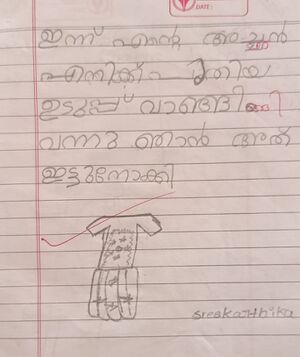 DATE:
ഇന്ന് എന്റെ അച്ഛൻ
എനിക്ക് പുതിയ
ഉടുപ്പ് വാങ്ങി
വന്നു ഞാൻ അത്
ഇട്ടുനോക്കി
sreekarthika